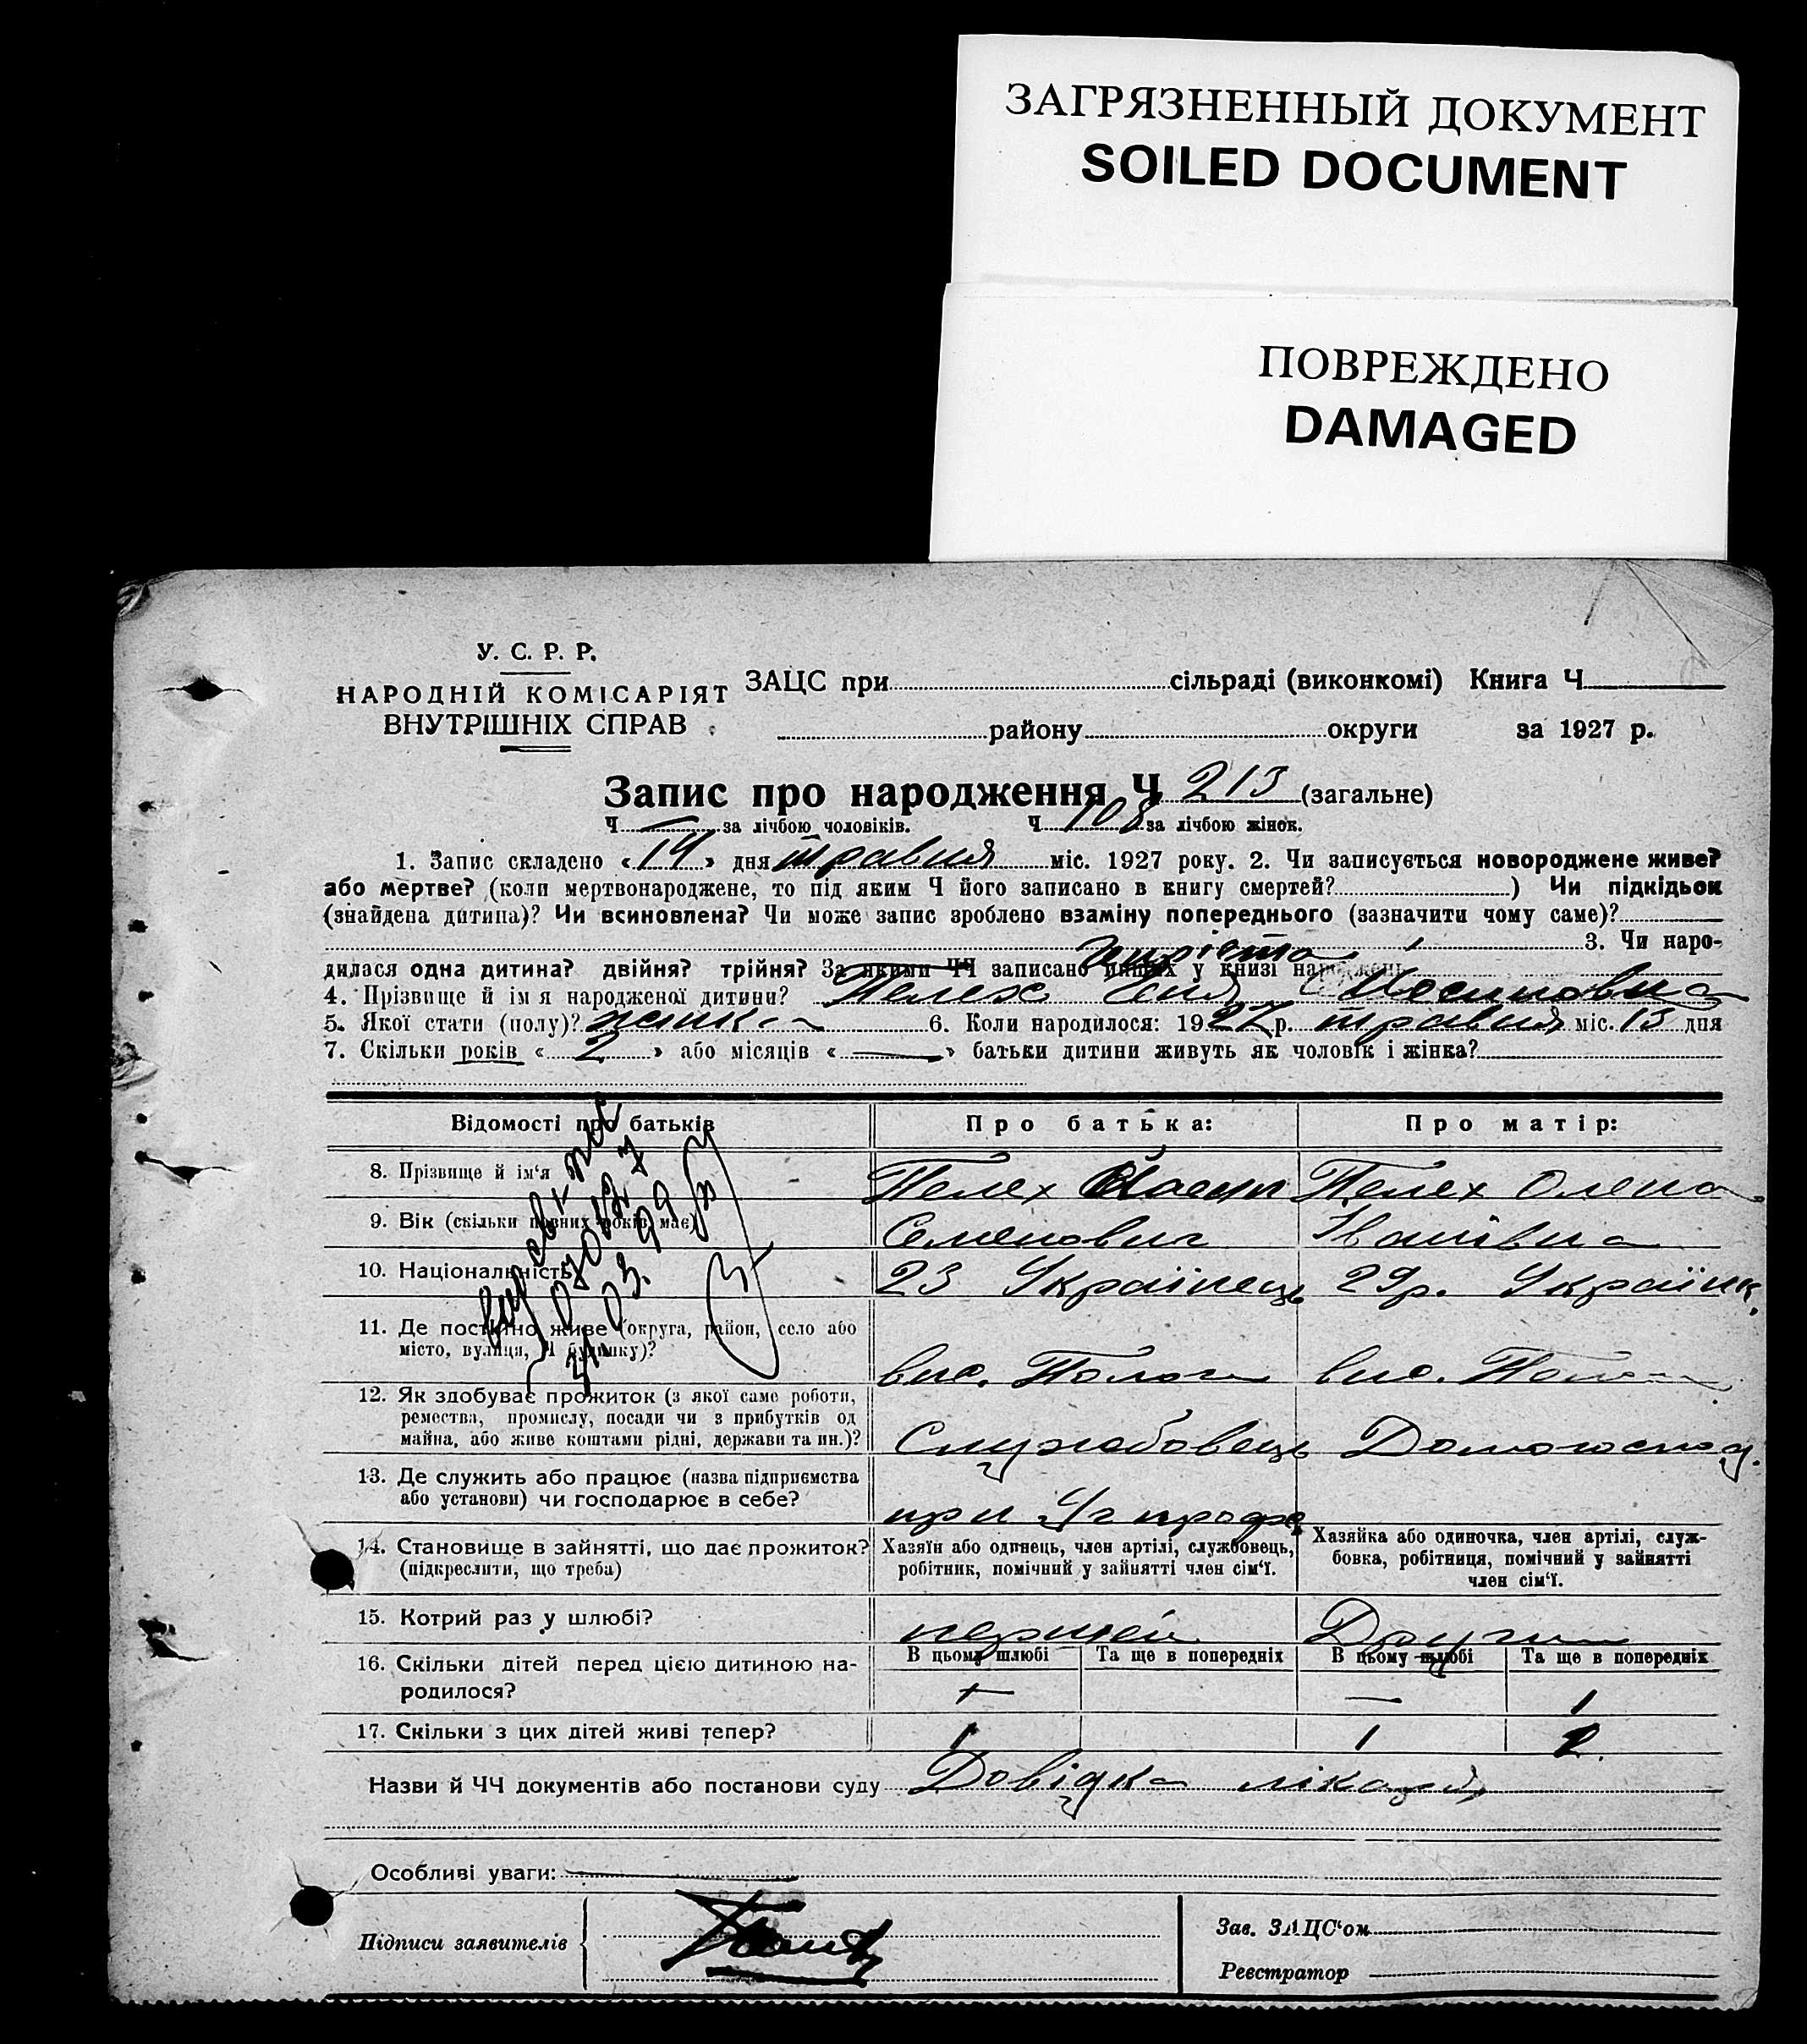 ЗАГРЯЗНЕННЫЙ ДОКУМЕНТ
SOILED DOCUMENT
ПОВРЕЖДЕНО
DAMAGED
У. С. Р. Р.
НАРОДНІЙ КОМІСАРІЯТ
ВНУТРІШНІХ СПРАВ
ЗАЦС при сільраді (виконкомі) Книга Ч
району округи за 1927 р.
Запис про народження Ч 213 (загальне)
Ч — за лічбою чоловіків. Ч 108 за лічбою жінок.
1. Запис складено «14» дня травня міс. 1927 року. 2. Чи записується новороджене живе?
або мертве? (коли мертвонароджене, то під яким Ч його записано в книгу смертей? ) Чи підкідьок
(знайдена дитина)? Чи всиновлена? Чи може запис зроблено взаміну попереднього (зазначити чому саме)?
3. Чи наро-
дилася одна дитина? двійня? трійня? За якими ЧЧ записано инших у книзі народжень
4. Прізвище й ім я народженої дитини? Пелех
5. Якої стати (полу)? жінка 6. Коли народилося: 1927 р. травня міс. 13 дня
7. Скільки років « 2 » або місяців « — » батьки дитини живуть як чоловік і жінка?
Відомості про батьків
Про батька:
Про матір:
8. Прізвище й ім‘я
Пелех Йосип
Пелех Олена
9. Вік (скільки повних років має)
Семенович
Іванівна
10. Національність
23 Українець
29р. Українк.
11. Де постійно живе (округа, район, село або
місто, вулиця, Ч будинку)?
вис. Пологи
вис. Пологи
12. Як здобуває прожиток (з якої саме роботи,
ремества, промислу, посади чи з прибутків од
майна, або живе коштами рідні, держави та ин.)?
Службовець
Домогоспод.
13. Де служить або працює (назва підприємства
або установи) чи господарює в себе?
при
14. Становище в зайнятті, що дає прожиток?
(підкреслити, що треба)
Хазяїн або одинець, член артілі, службовець,
робітник, помічний у зайнятті член сім‘ї.
Хазяйка або одиночка, член артілі, служ-
бовка, робітниця, помічний у зайнятті
член сім‘ї.
15. Котрий раз у шлюбі?
перший
Другий
16. Скільки дітей перед цією дитиною на-
родилося?
В цьому шлюбі
Та ще в попередніх
В цьому шлюбі
Та ще в попередніх
— 1
17. Скільки з цих дітей живі тепер?
1 1 2
Назви й ЧЧ документів або постанови суду Довідка лікаря
Особливі уваги:
Підписи заявителів
Зав. ЗАЦС‘ом
Реєстратор